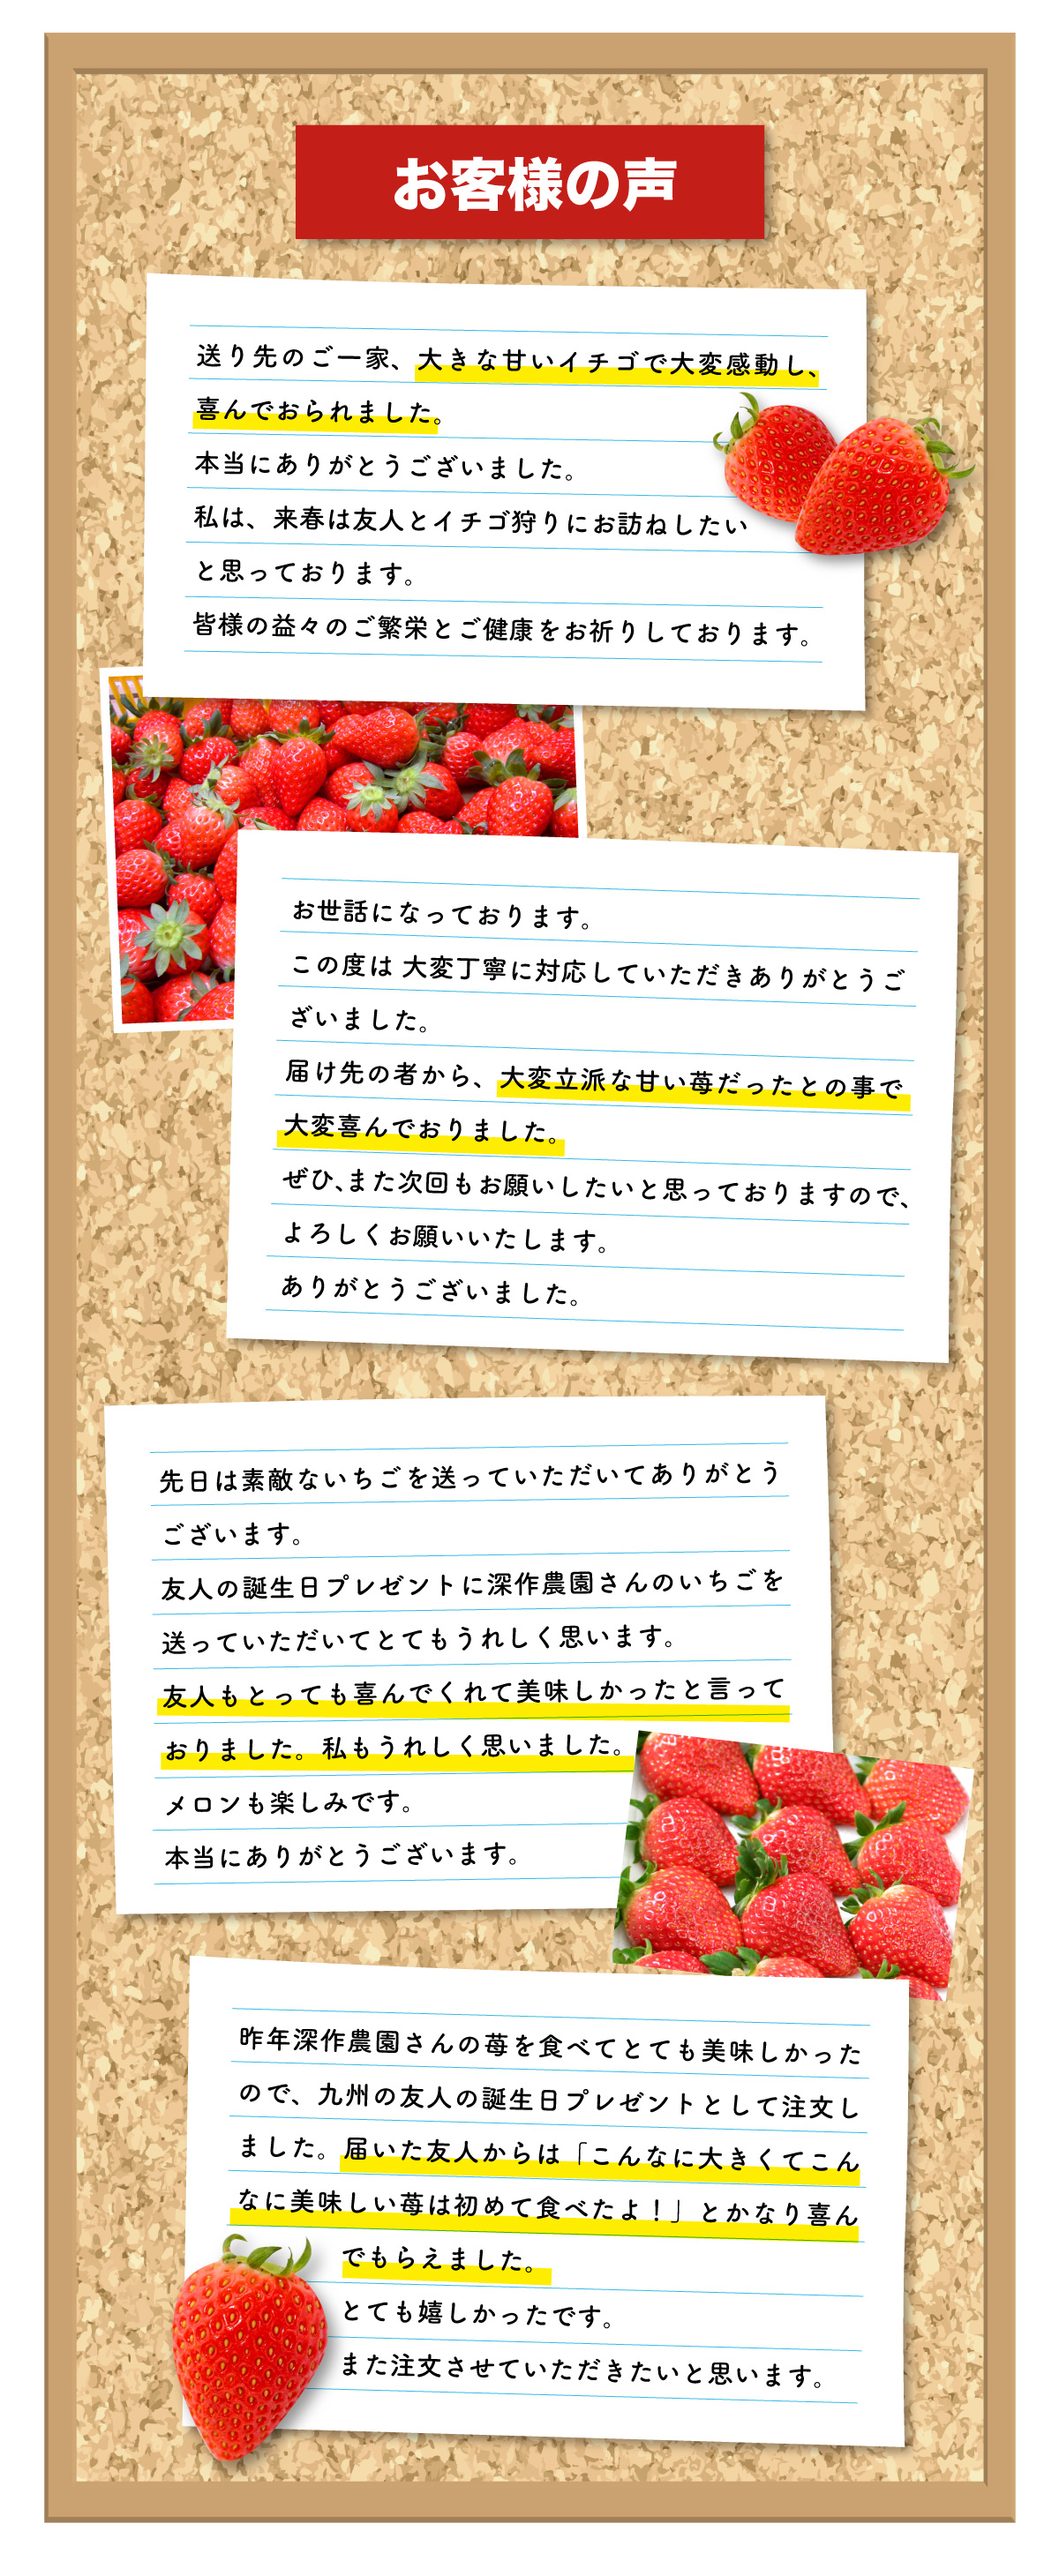 お客様の声
送り先のご一家、大きな甘いイチゴで大変感動し、
喜んでおられました。
本当にありがとうございました。
私は、来春は友人とイチゴ狩りにお訪ねしたい
と思っております。
皆様の益々のご繁栄とご健康をお祈りしております。
お世話になっております。
この度は 大変丁寧に対応していただきありがとうご
ざいました。
届け先の者から、大変立派な甘い苺だったとの事で
大変喜んでおりました。
ぜひ、また次回もお願いしたいと思っておりますので、
よろしくお願いいたします。
ありがとうございました。
先日は素敵ないちごを送っていただいてありがとう
ございます。
友人の誕生日プレゼントに深作農園さんのいちごを
送っていただいてとてもうれしく思います。
友人もとっても喜んでくれて美味しかったと言って
おりました。私もうれしく思いました。
メロンも楽しみです。
本当にありがとうございます。
昨年深作農園さんの苺を食べてとても美味しかった
ので、九州の友人の誕生日プレゼントとして注文し
ました。届いた友人からは「こんなに大きくてこん
なに美味しい苺は初めて食べたよ！」とかなり喜ん
でもらえました。
とても嬉しかったです。
また注文させていただきたいと思います。